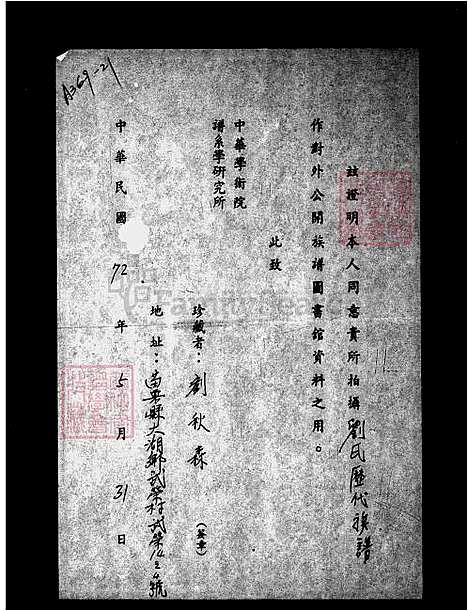 A369-21
茲證明本人同意貴所拍攝劉氏歷代族譜
作對外公開族譜圖書館資料之用。
此致
中華學術院
譜系學研究所
珍藏者：劉秋森（簽章）
地址：苗栗縣大湖鄉武榮村武榮 24號
中華民國72年5月31日
FamilySearch